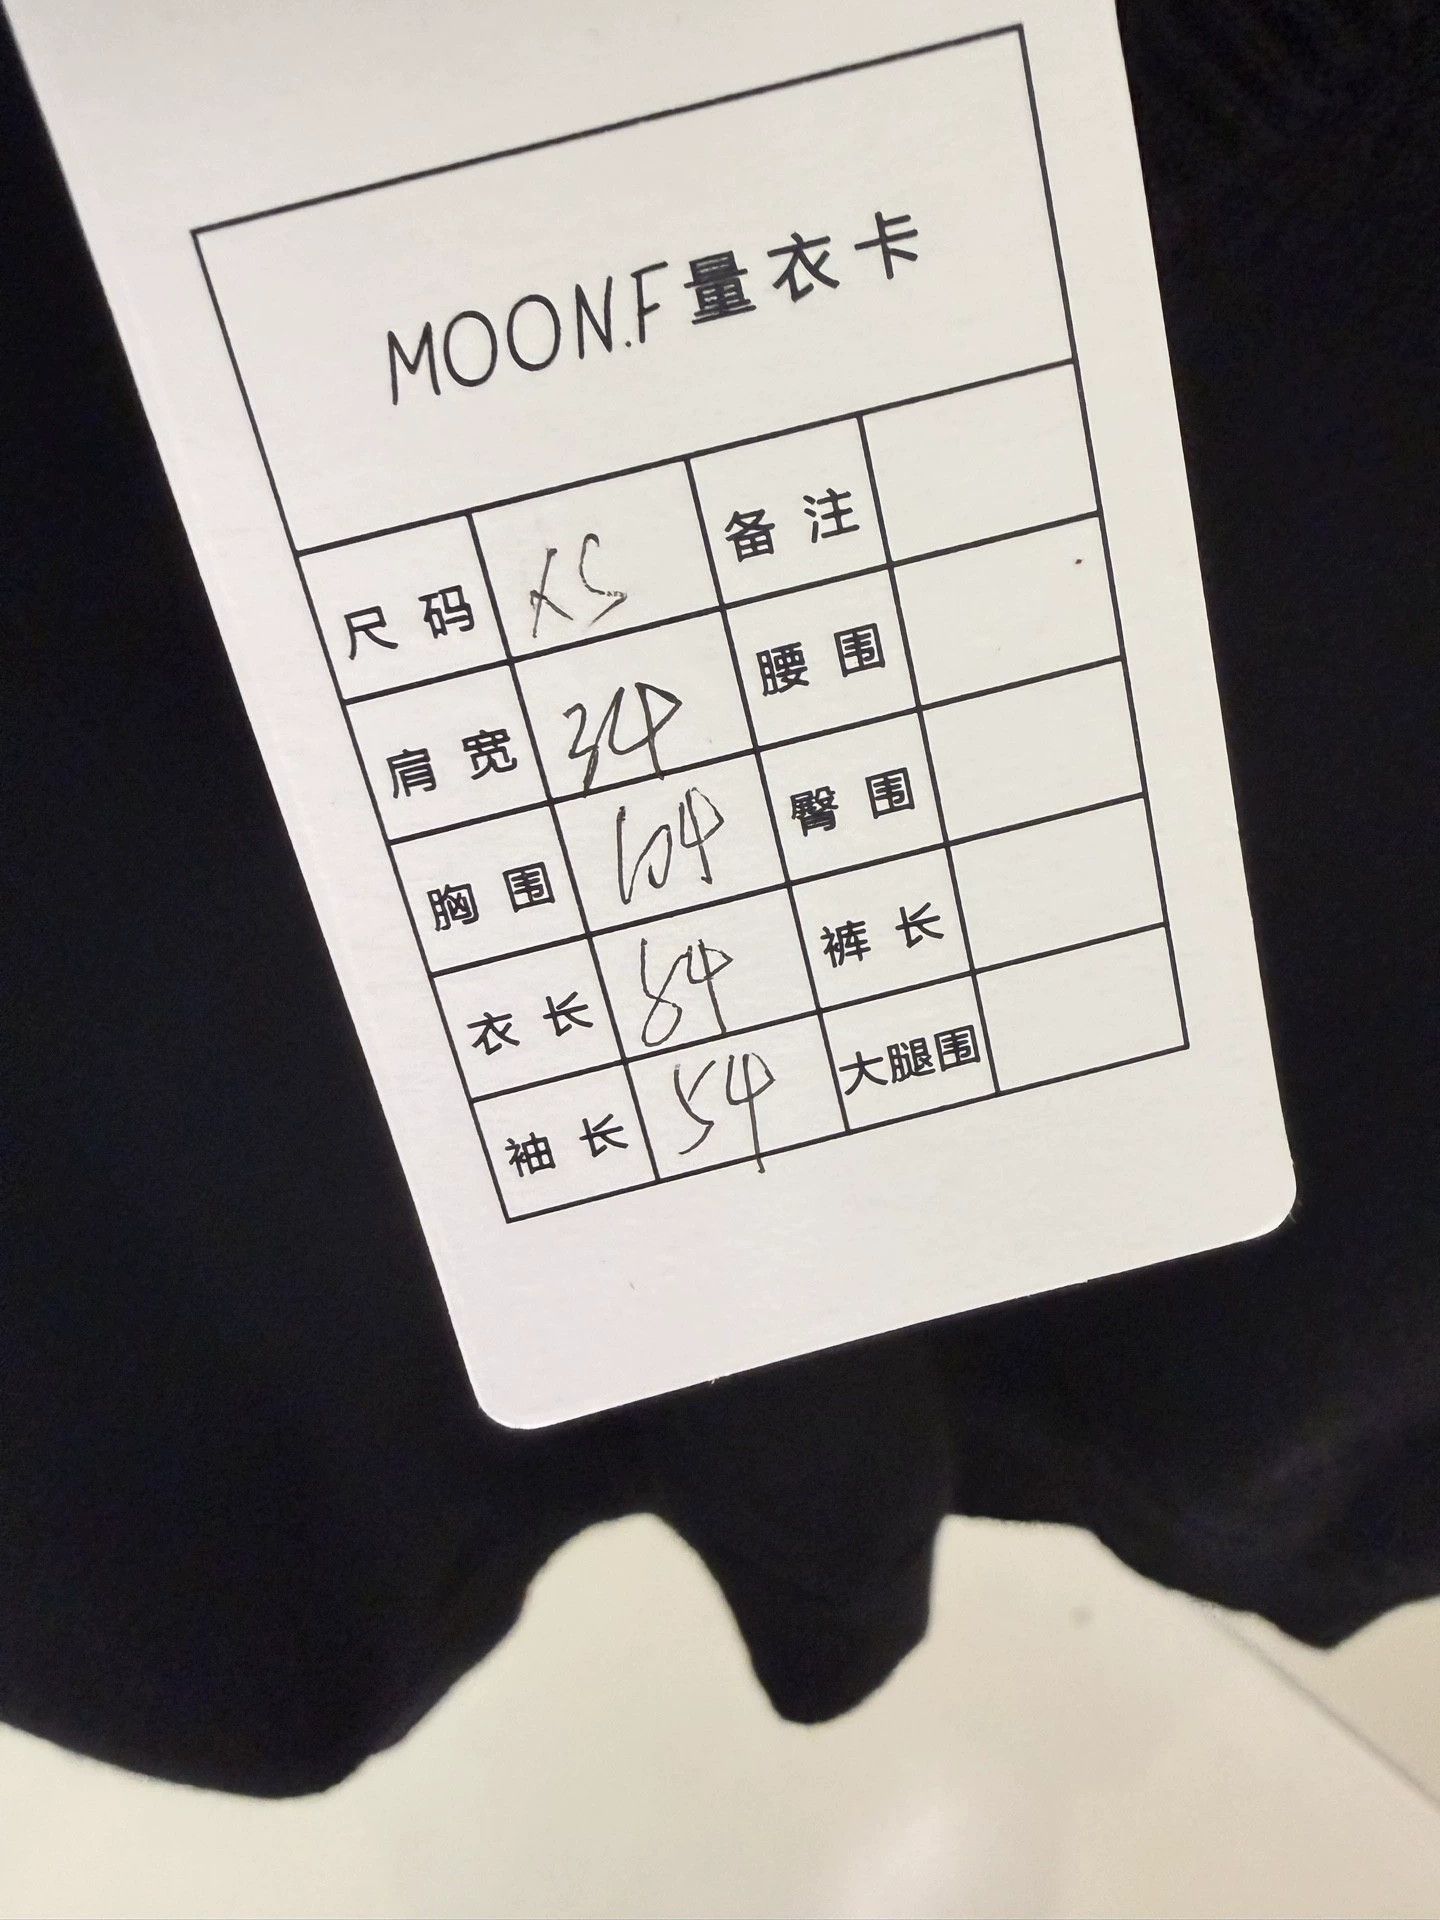 MOON.F量衣卡
尺码 XS 备注
肩宽 34 腰围
胸围 104 臀围
衣长 84 裤长
袖长 54 大腿围